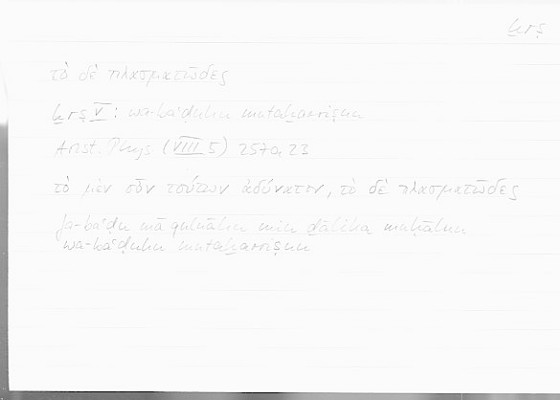 ḫrṣ
τὸ δὲ πλασματῶδες
ḫrṣ V : wa-baʿḍuhu mutaḫarriṣun
Arist. Phys (VIII 5) 257a23
τὸ μὲν οὖν τούτων ἀδύνατον, τὸ δὲ πλασματῶδες
fa-baʿḍu mā qulnāhu min ḏālika muḥālun
wa-baʿḍuhu mutaḫarriṣun